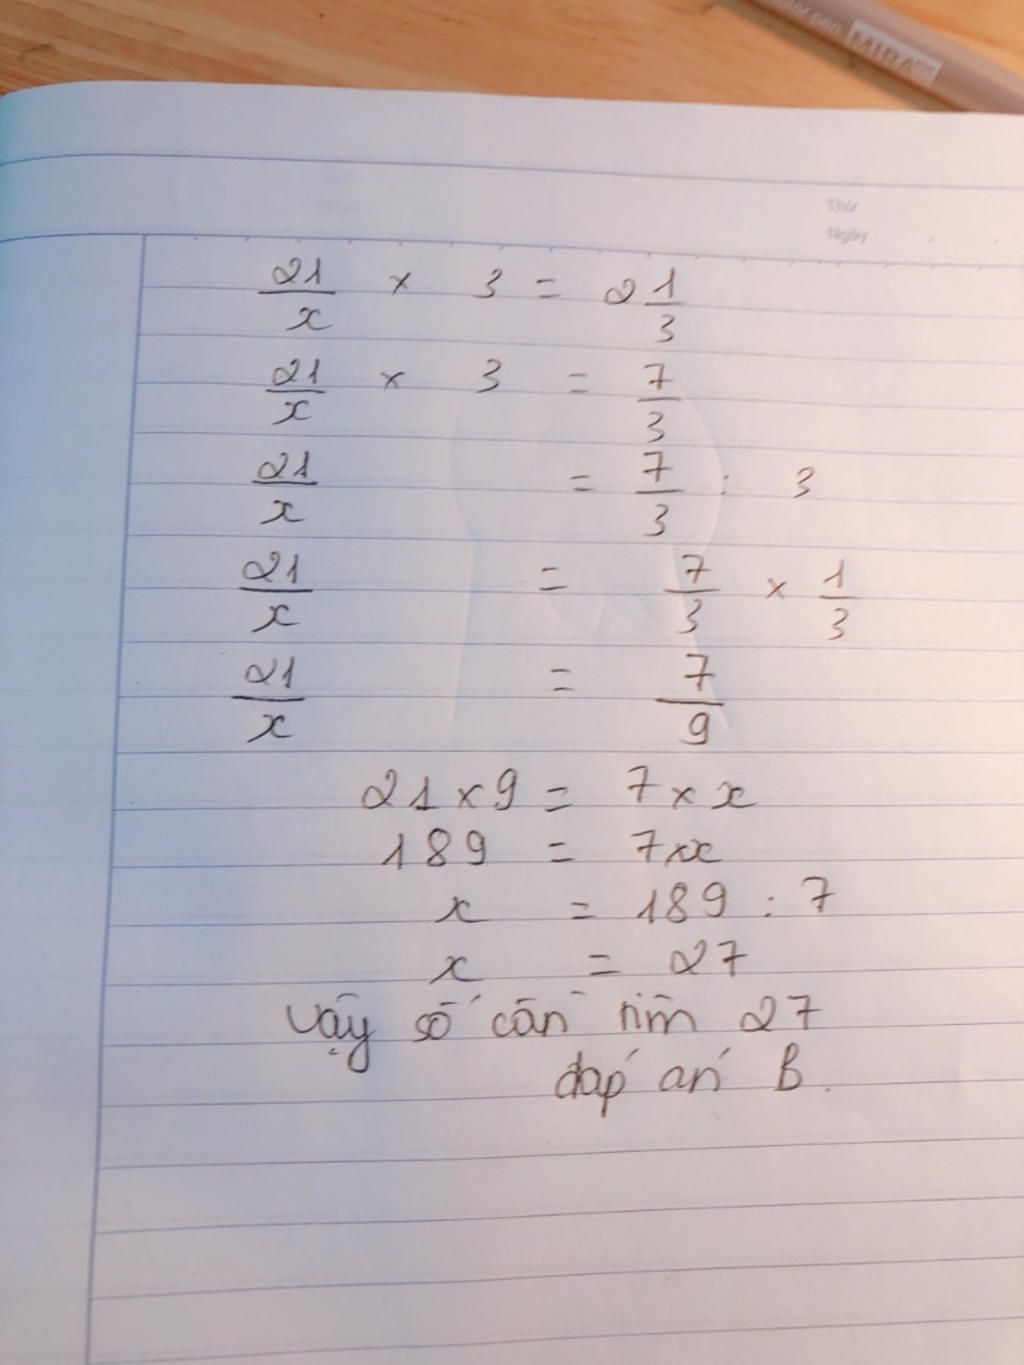 MIRA
Thứ
Ngày
21/x × 3 = 2 1/3
21/x × 3 = 7/3
21/x = 7/3 : 3
21/x = 7/3 × 1/3
21/x = 7/9
21 × 9 = 7 × x
189 = 7 × x
x = 189 : 7
x = 27
Vậy số cần tìm 27
đáp án B.